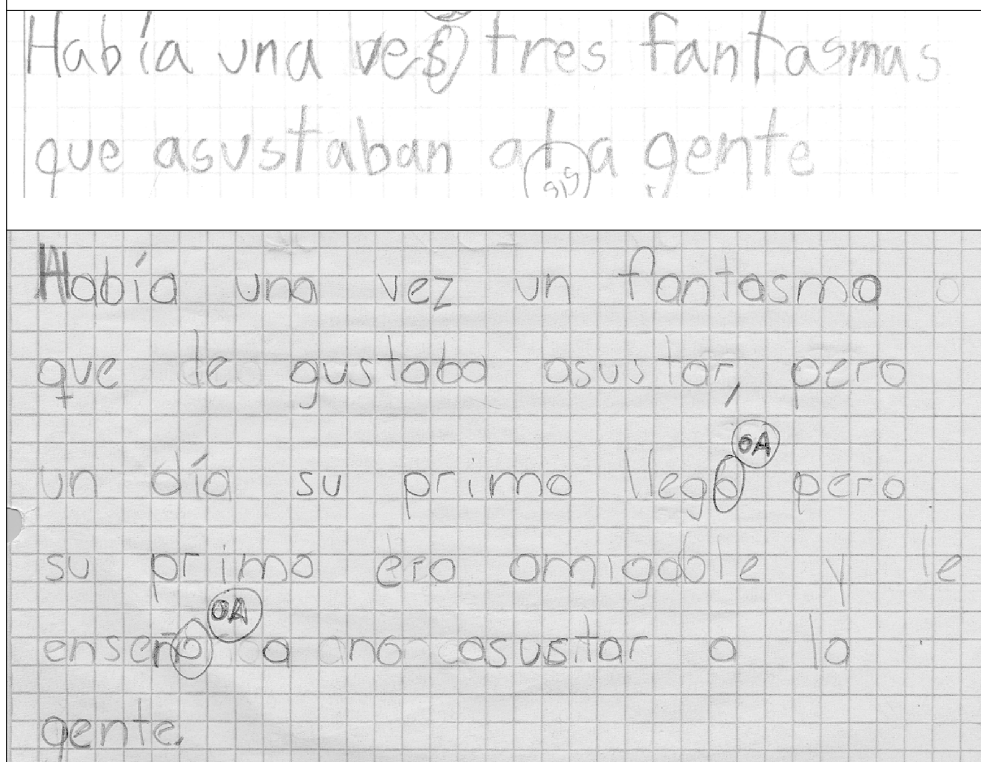 Había una ves tres fantasmas
que asustaban a la gente
Había una vez un fantasma
que le gustaba asustar, pero
OA
un día su primo llego pero
su primo era amigable y le
OA
enseño a no asustar a la
gente.